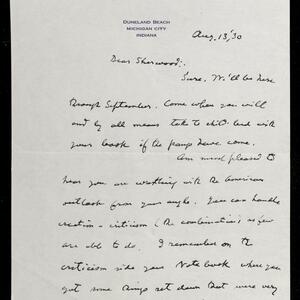 DUNELAND BEACH
MICHIGAN CITY
INDIANA
Aug. 13/30
Dear Sherwood:
Sure. We'll be here
through September. Come when you will
and by all means take to
your book if the have come.
Am much pleased to
hear you are working with the American
outlook from your angle. You can handle
creation + criticism (the combination) as few
are able to do. I remember on the
criticism side your Note book where you
got some things set down that were very